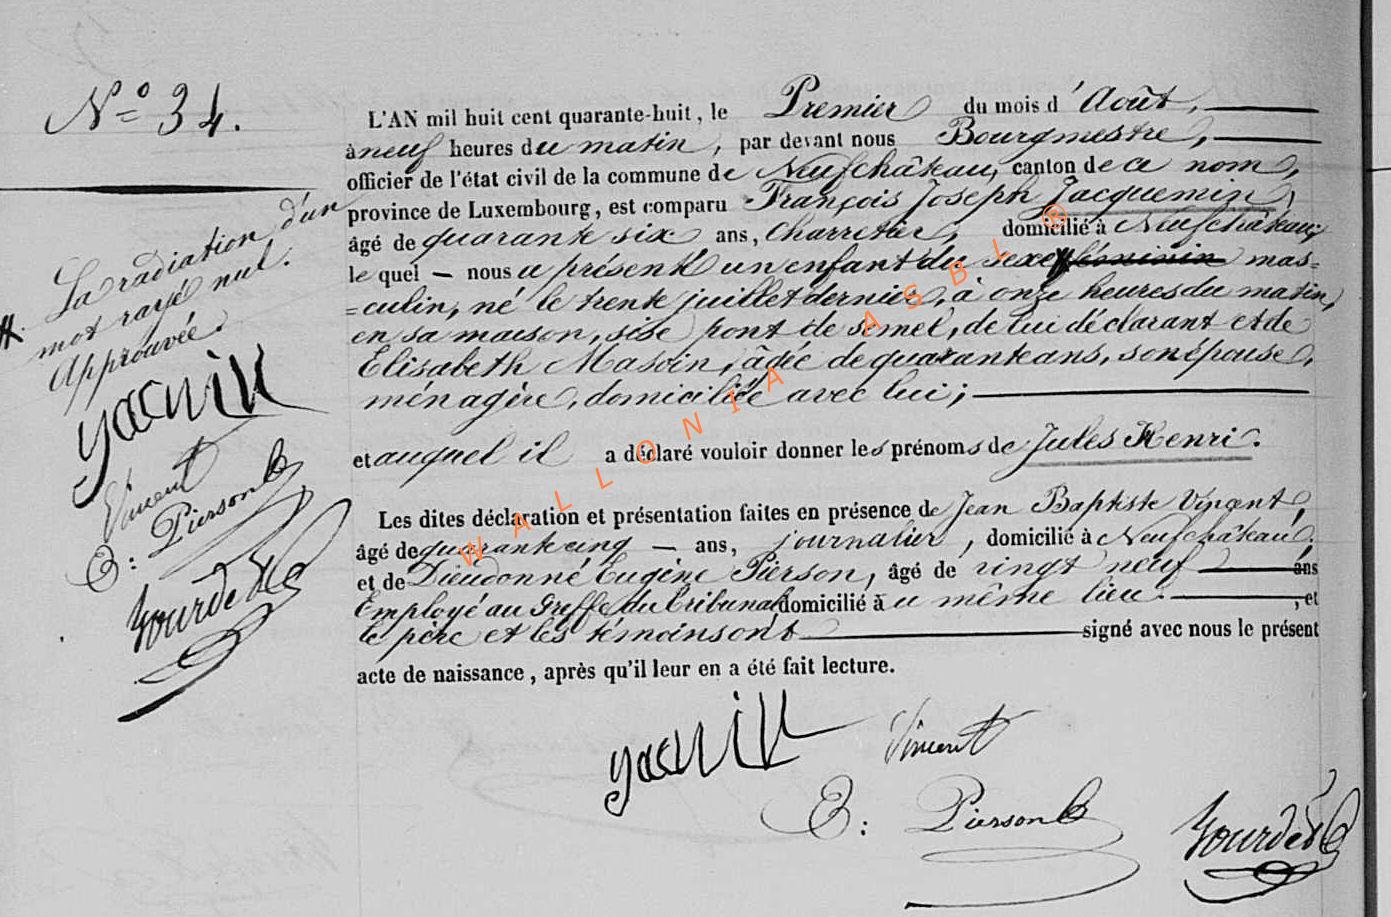 N° 34.
L'AN mil huit cent quarante-huit, le Premier du mois d'Août,
à neuf heures du matin, par devant nous Bourgmestre,
officier de l'état civil de la commune de Neufchâteau, canton de ce nom,
province de Luxembourg, est comparu François Joseph Jacquemin,
âgé de quarante six ans, charretier, domicilié à Neufchâteau,
le quel — nous a présenté un enfant du sexe féminin mas=
=culin, né le trente juillet dernier, à onze heures du matin,
en sa maison, sise pont de semel, de lui déclarant et de
Elisabeth Masoin, âgée de quarante ans, son épouse,
ménagère, domiciliée avec lui;
et auquel il a déclaré vouloir donner les prénoms de Jules Henri.
Les dites déclaration et présentation faites en présence de Jean Baptiste Vincent,
âgé de quarante cinq — ans, journalier, domicilié à Neufchâteau,
et de Dieudonné Eugène Pierson, âgé de vingt neuf ans
Employé au Greffe du tribunal domicilié à u même lieu. , et
le père et les témoins ont signé avec nous le présent
acte de naissance, après qu'il leur en a été fait lecture.
La radiation d'un
mot rayé nul.
Approuvée
Vincent
E: Pierson
Vincent
E: Pierson
WALLONIA ASBL ®